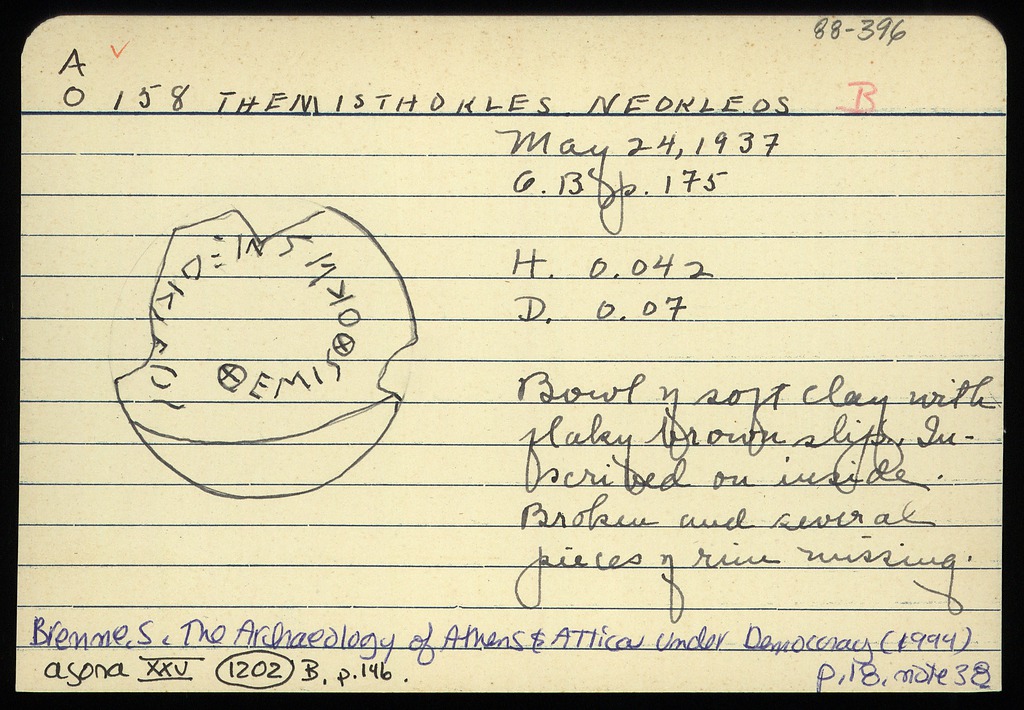 88-396
A ✓
O 158 THEMISTHOKLES NEOKLEOS B
May 24, 1937
G.B' p. 175
H. 0.042
D. 0.07
⊗EMIS⊗OKL
Bowl of soft clay with
flaky brown slip. In-
scribed on inside.
Broken and several
pieces of rim missing.
Brenne, S. The Archaeology of Athens & Attica under Democracy (1994)
p. 18, note 38
agora XXV (1202) B, p. 146.